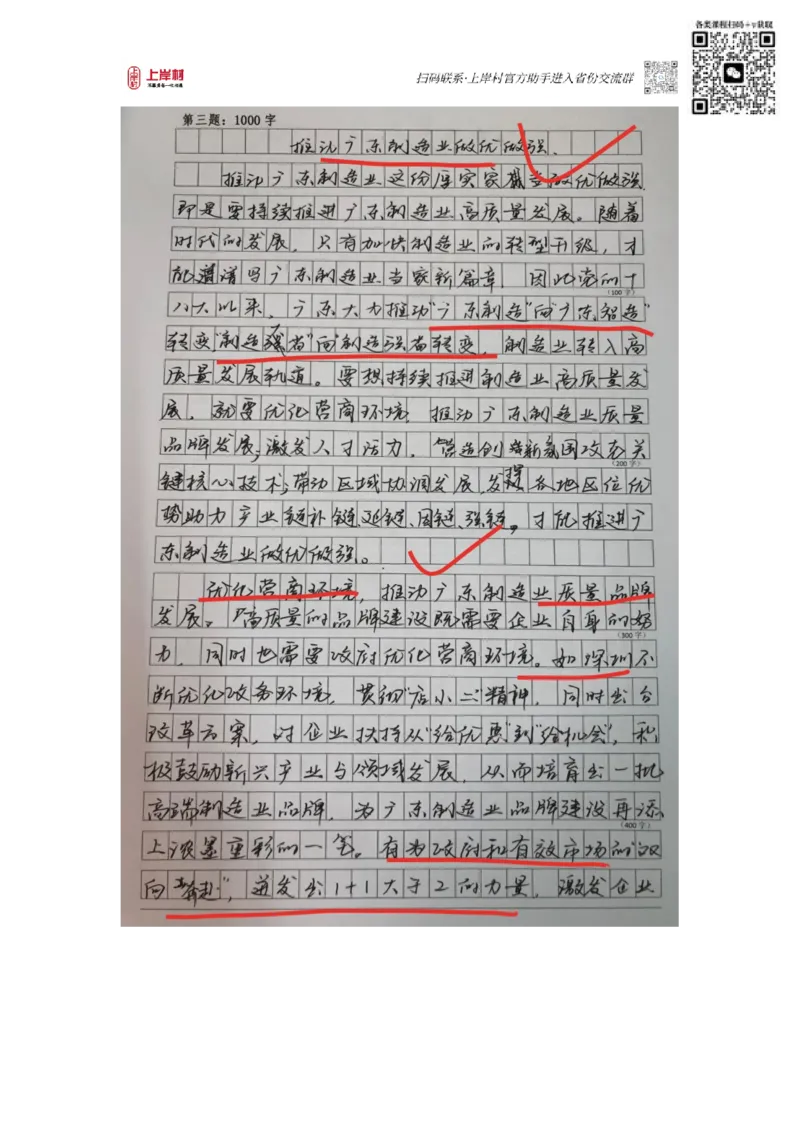 各类课程扫码+v获取
上岸村
扫码联系·上岸村官方助手进入省份交流群
第三题：1000 字
推动广东制造业做优做强
推动广东制造业这份厚实家当做优做强
即是要持续推进广东制造业高质量发展。随着
时代的发展，只有加快制造业的转型升级，才
能谱写广东制造业当家新篇章，因此党的十
（100 字）
八大以来，广东大力推动“广东制造”向“广东智造”
转变“制造大省”向“制造强省转变，制造业转入高
质量发展轨道。要想持续推进制造业高质量发
展，就要优化营商环境，推动广东制造业质量
品牌发展；激发人才活力，营造创新氛围攻克关
（200 字）
键核心技术；带动区域协调发展，发挥各地区位优
势助力产业链补链、延链、固链、强链，才能推进广
东制造业做优做强。
优化营商环境，推动广东制造业质量品牌
发展。高质量的品牌建设既需要企业自身的努
（300 字）
力，同时也需要政府优化营商环境。如深圳不
断优化政务环境，贯彻“店小二”精神，同时出台
改革方案，对企业扶持从“给优惠”到“给机会”，积
极鼓励新兴产业与领域发展，从而培育出一批
高端制造业品牌，为广东制造业品牌建设再添
（400 字）
上浓墨重彩的一笔。有为政府和有效市场的双
向“奔赴”，迸发出1+1大于2的力量，激发企业